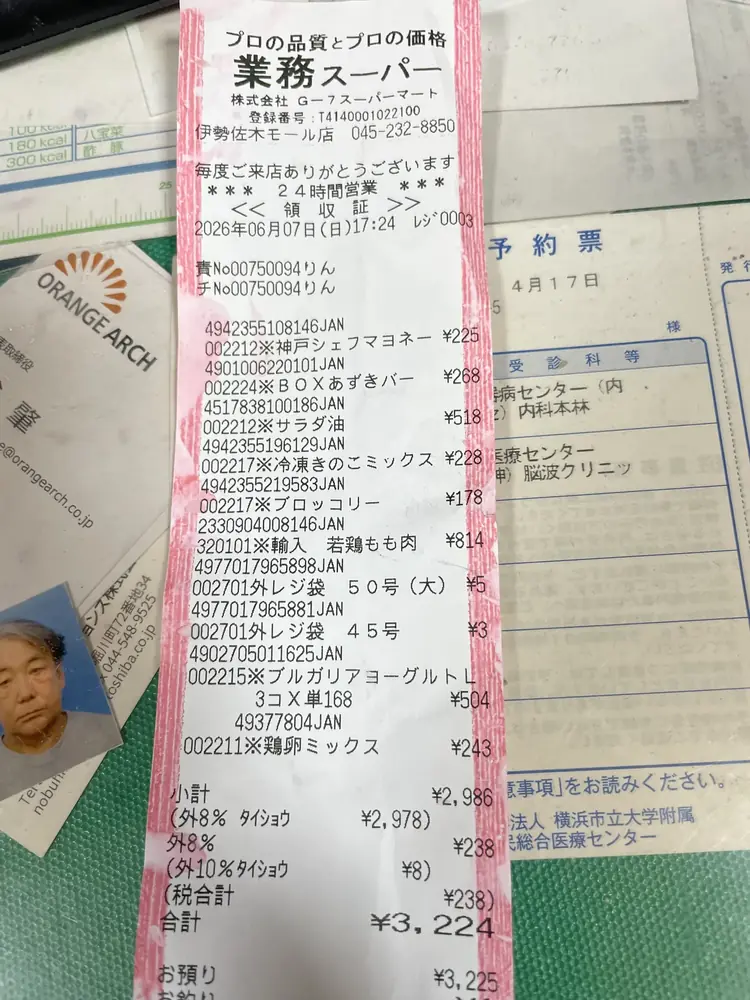 プロの品質とプロの価格
業務スーパー
株式会社 G-7スーパーマート
登録番号:T4140001022100
伊勢佐木モール店 045-232-8850
毎度ご来店ありがとうございます
*** 24時間営業 ***
<< 領収証 >>
2026年06月07日(日)17:24 レジ0003
責No00750094りん
チNo00750094りん
4942355108146JAN
002212※神戸シェフマヨネー ¥225
4901006220101JAN
002224※BOXあずきバー ¥268
4517838100186JAN
002212※サラダ油 ¥518
4942355196129JAN
002217※冷凍きのこミックス ¥228
4942355219583JAN
002217※ブロッコリー ¥178
2330904008146JAN
320101※輸入 若鶏もも肉 ¥814
4977017965898JAN
002701外レジ袋 50号(大) ¥5
4977017965881JAN
002701外レジ袋 45号 ¥3
4902705011625JAN
002215※ブルガリアヨーグルトL
3コX単168 ¥504
49377804JAN
002211※鶏卵ミックス ¥243
小計 ¥2,986
(外8% タイショウ ¥2,978)
外8% ¥238
(外10%タイショウ ¥8)
(税合計 ¥238)
合計 ¥3,224
お預り ¥3,225
100 kcal
180 kcal 八宝菜
300 kcal 酢豚
25
ORANGE ARCH
肇
e@orangearch.co.jp
川町72番地34
044-548-9525
toshiba.co.jp
nobu
予約票
4月17日
様
受診科等
病センター(内
内科本林
医療センター
脳波クリニッ
意事項」をお読みください。
法人 横浜市立大学附属
民総合医療センター